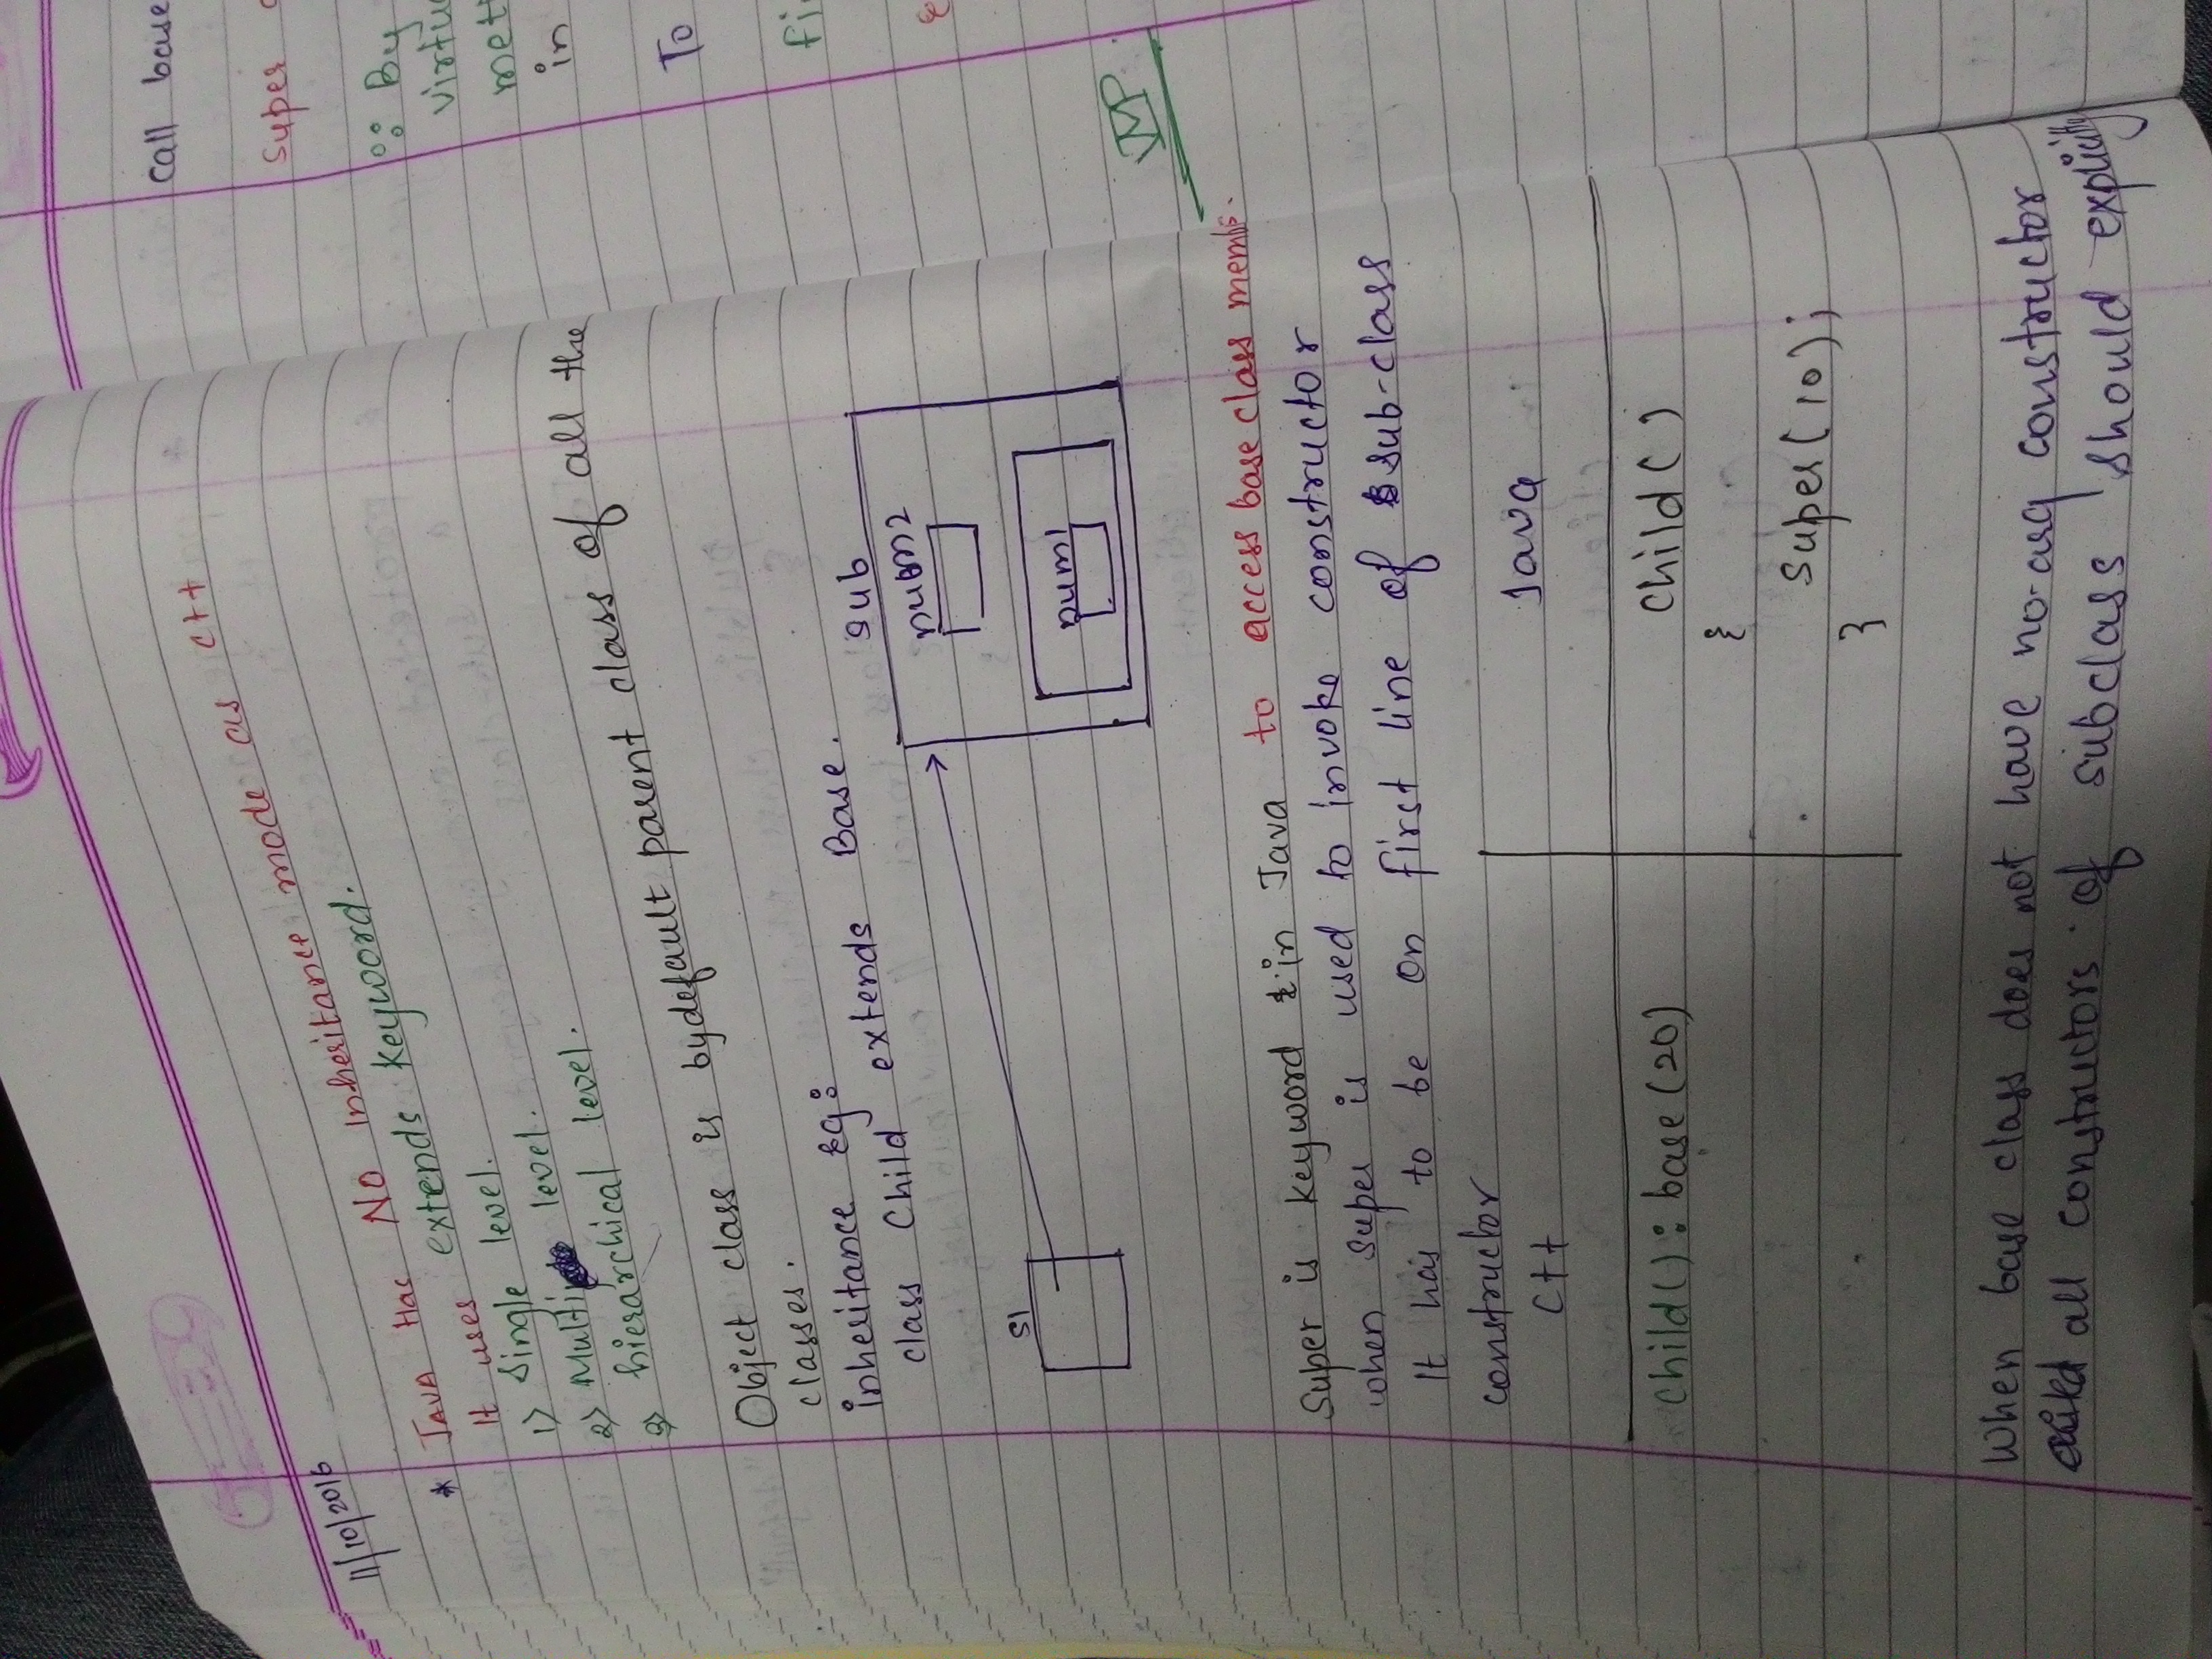 11/10/2016
* JAVA Has NO Inheritance mode as C++
It uses extends keyword.
1) Single level.
2) Multi level.
3) hierarchical level.
Object class is bydefault parent class of all the
classes.
inheritance Eg:
class Child extends Base.
sub
num2
S1
num1
Super is keyword in Java to access base class membs.
when super is used to invoke constructor
It has to be on first line of sub-class
constructor
C++
Java
Child() : base (20)
Child ( )
{
Super ( 10 ) ;
}
When base class does not have no-arg constructor
all constructors of subclass should explicitly
call base
Super
∵ By
in
To